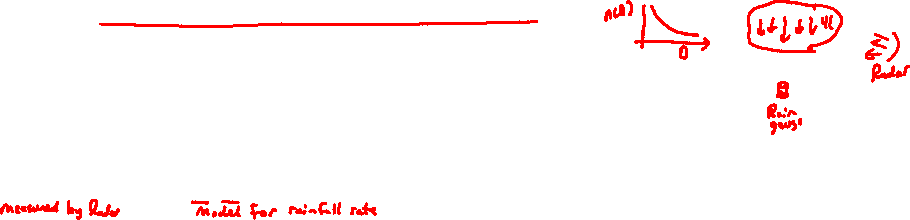 n(D)
D
Radar
Rain
gauge
measured by Radar
model for rainfall rate